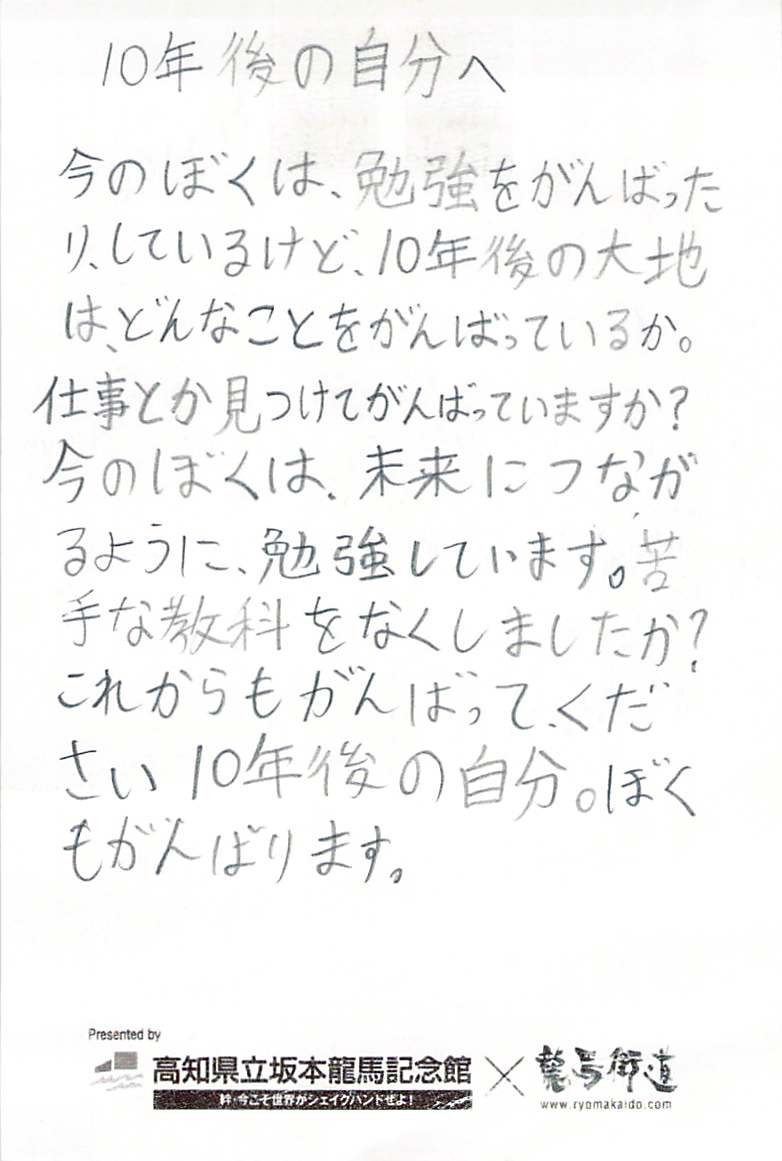 10年後の自分へ
今のぼくは、勉強をがんばった
り、しているけど、10年後の大地
は、どんなことをがんばっているか。
仕事とか見つけてがんばっていますか?
今のぼくは、未来につなが
るように、勉強しています。苦
手な教科をなくしましたか?
これからもがんばって、くだ
さい10年後の自分。ぼく
もがんばります。
Presented by
高知県立坂本龍馬記念館 × 龍馬街道
絆・今こそ世界がシェイクハンドぜよ!
www.ryomakaido.com